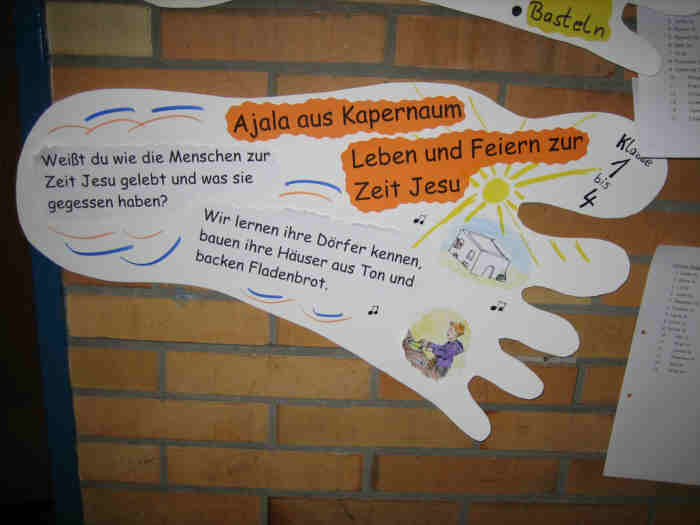 Basteln
Ajala aus Kapernaum
Leben und Feiern zur
Zeit Jesu
Klasse
1
bis
4
Weißt du wie die Menschen zur
Zeit Jesu gelebt und was sie
gegessen haben?
Wir lernen ihre Dörfer kennen,
bauen ihre Häuser aus Ton und
backen Fladenbrot.